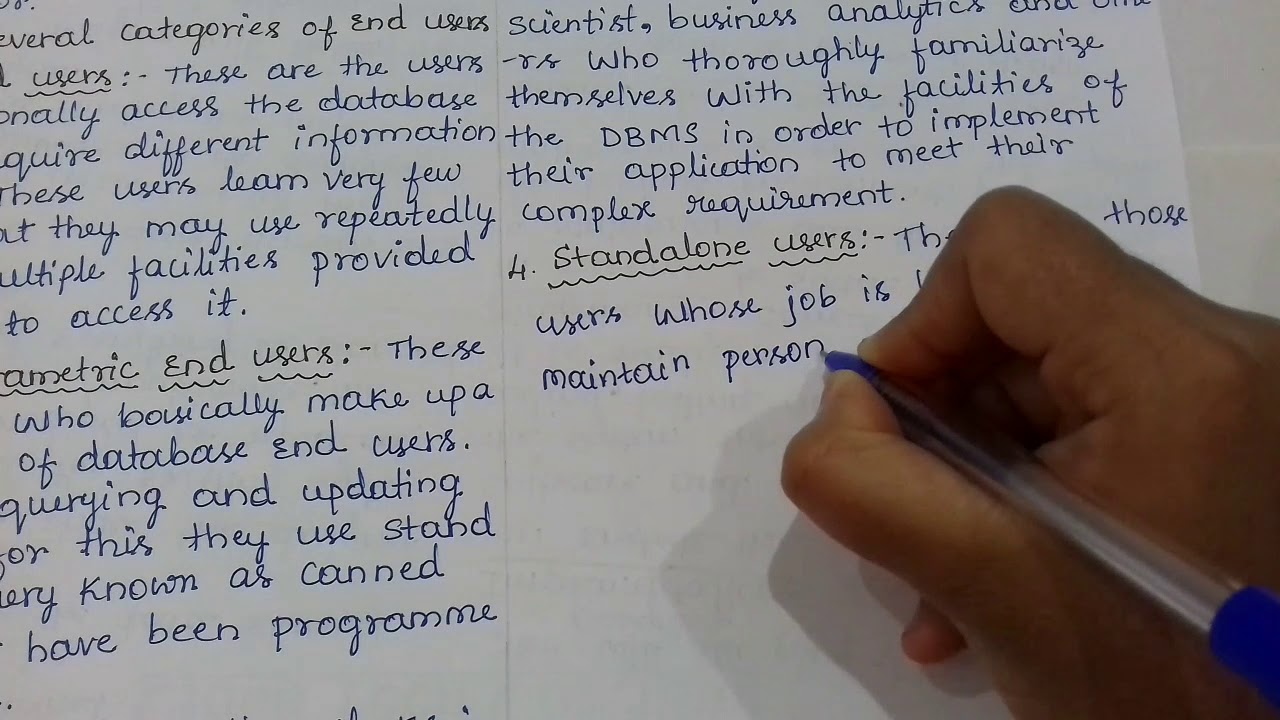 everal categories of End users
users:- These are the users
onally access the database
quire different information
These users learn very few
but they may use repeatedly
ultiple facilities provided
to access it.
rametric End users:- These
who basically make up a
of database End users.
querying and updating
for this they use stand
uery known as canned
have been programme
scientist, business analytics and
-rs who thoroughly familiarize
themselves with the facilities of
the DBMS in order to implement
their application to meet their
complex requirement.
4. Standalone users:- Th those
users whose job is
maintain person